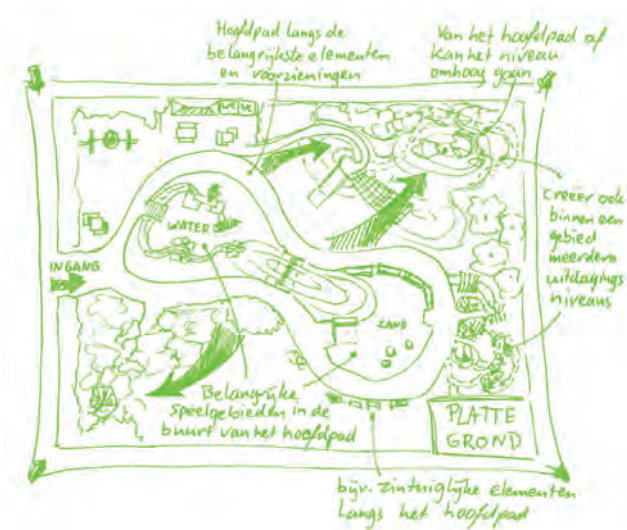 Hoofdpad langs de
belangrijkste elementen
en voorzieningen
Van het hoofdpad af
kan het niveau
omhoog gaan
creëer ook
binnen een
gebied
meerdere
uitdagings
niveaus
WATER
INGANG
ZAND
Belangrijke
speelgebieden in de
buurt van het hoofdpad
PLATTE
GROND
bijv. zintuiglijke elementen
langs het hoofdpad